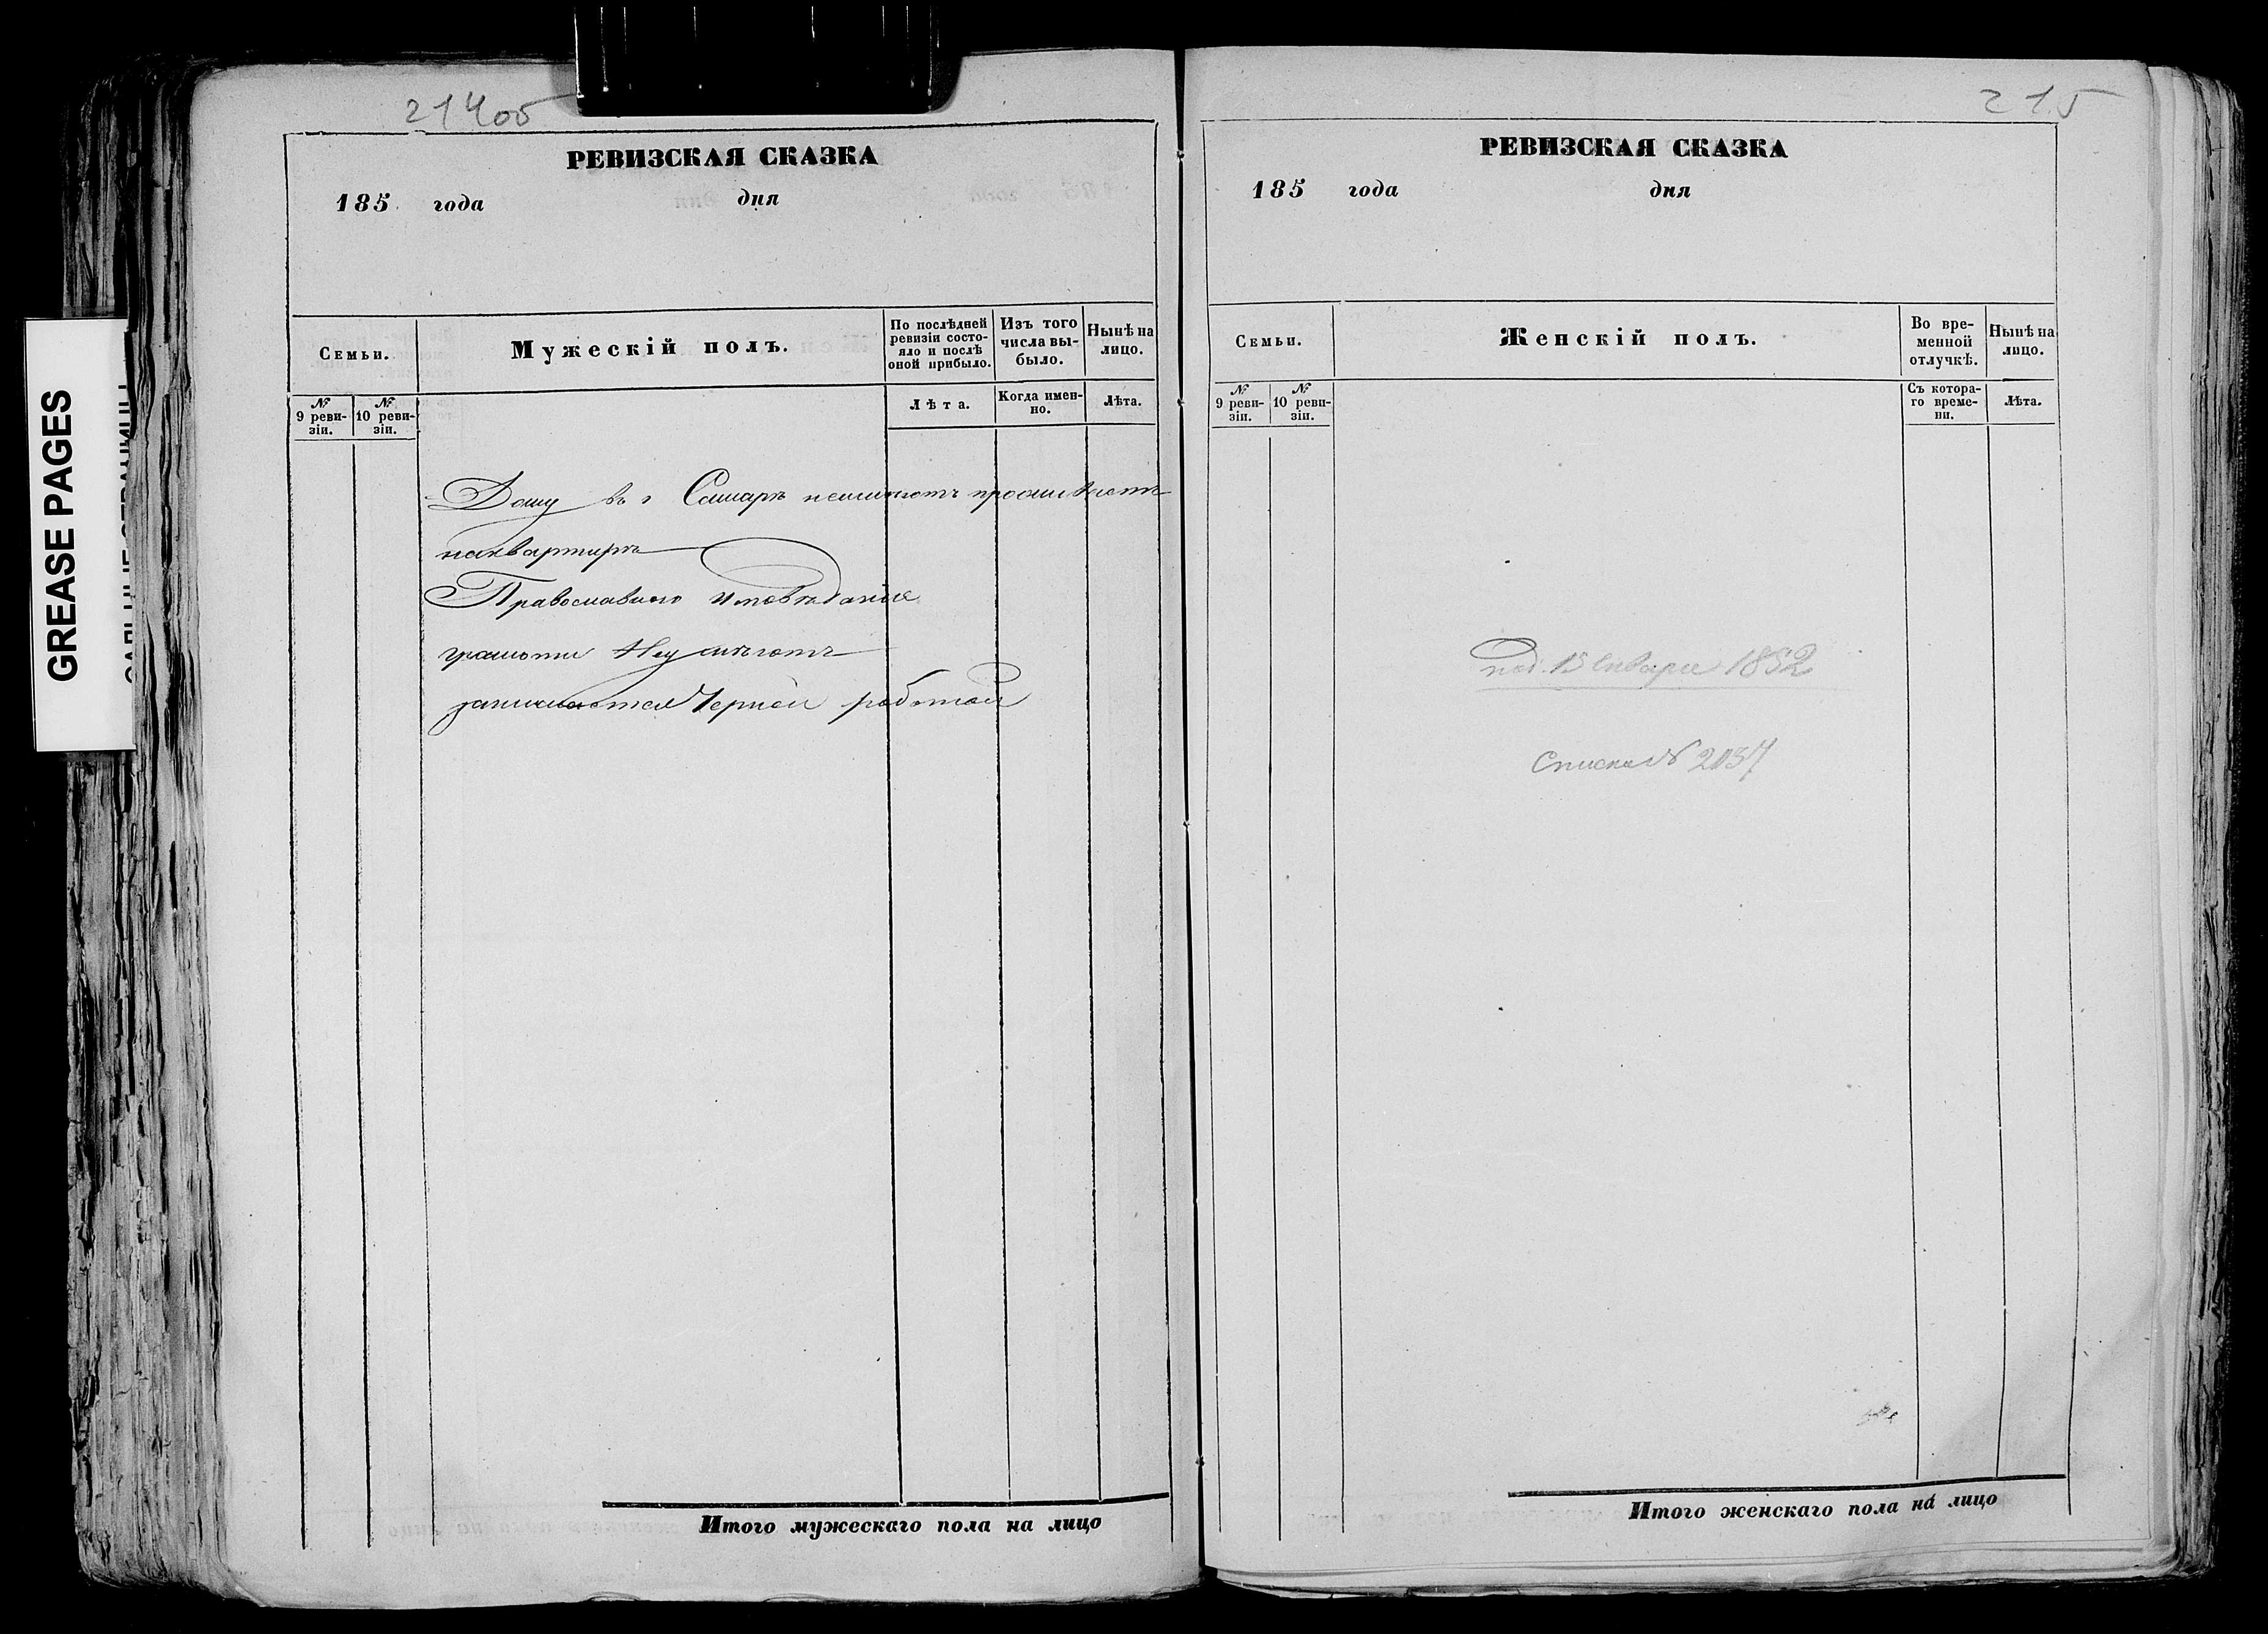 GREASE PAGES
214об
РЕВИЗСКАЯ СКАЗКА
185 года дня
Семьи.
Мужескій полъ.
По послѣдней ревизіи состояло и послѣ оной прибыло.
Изъ того числа выбыло.
Нынѣ на лицо.
№ 9 ревизіи.
№ 10 ревизіи.
Лѣта.
Когда именно.
Лѣта.
Дому въ г Самарѣ неимѣютъ проживаютъ
наквартирѣ
Православного Исповѣданія
грамоти Неумѣютъ
занимаются Черной работой
Итого мужескаго пола на лицо
215
РЕВИЗСКАЯ СКАЗКА
185 года дня
Семьи.
Женскій полъ.
Во временной отлучкѣ.
Нынѣ на лицо.
№ 9 ревизіи.
№ 10 ревизіи.
Съ котораго времени.
Лѣта.
под. 15 Января 1852
Списка №
Итого женскаго пола на лицо